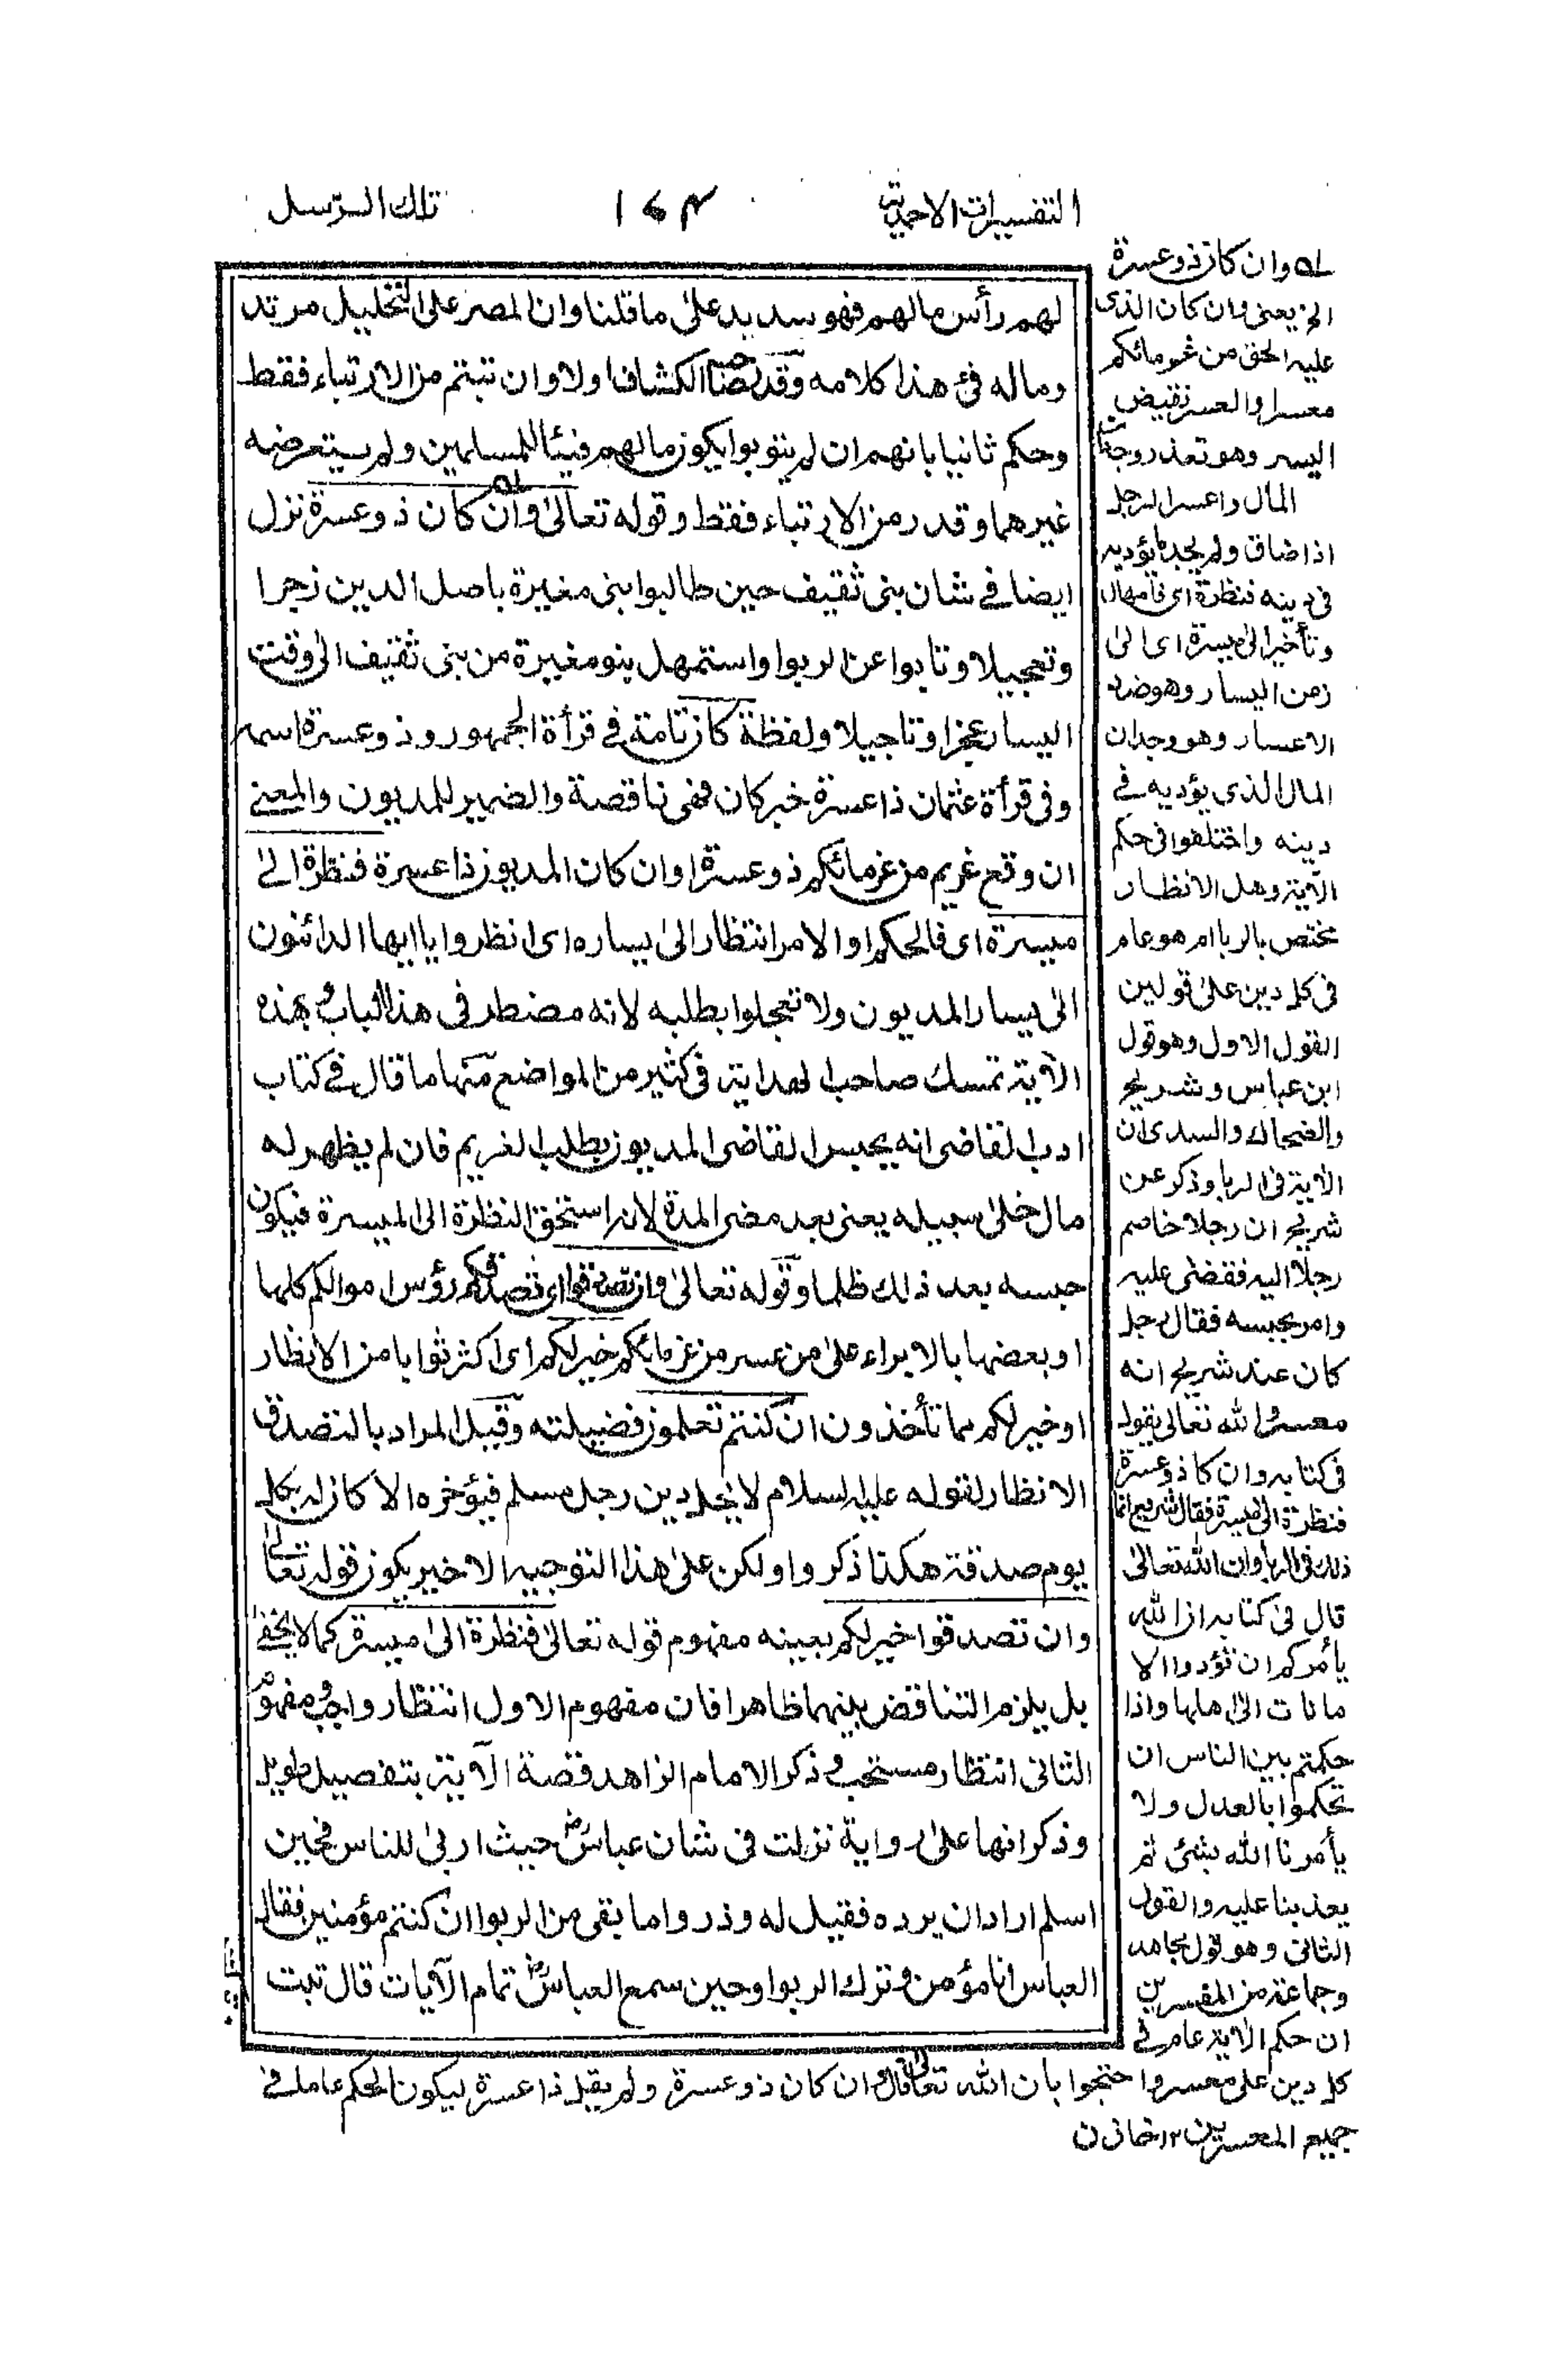 التفسيرات الاحمدية
۱۶۴
تلك الرسل
لهم رأس مالهم فهو سديد على ما قلنا وان المصر على التحليل مرتد
وماله فئ هذا كلامه وقد نص صاحب الكشاف اولا وان تبتم من الارتباء فقط
وحكم ثانيا بانهم ان لم يتوبوا يكون مالهم فيئا للمسلمين ولم يتعرض له
غيرهما وقدر من الارتباء فقط وقوله تعالى وان كان ذو عسرة نزل
ايضا في شان بنى ثقيف حين طالبوا بنى مغيرة باصل الدين زجرا
وتعجيلا وتابوا عن الربوا واستمهل بنو مغيرة من بنى ثقيف الى وقت
اليسار عجزا وتاجيلا ولفظة كان تامة في قرأة الجمهور وذو عسرة اسمه
وفى قرأة عثمان ذا عسرة خبر كان فهى ناقصة والضمير للمديون والمعنى
ان وقع غريم من غرمائكم ذو عسرة او ان كان المديون ذا عسرة فنظرة الى
ميسرة اى فالحكم او الامر انتظار الى يساره اى انظروا يا ايها الدائنون
الى يسار المديون ولا تعجلوا بطلبه لانه مضطر فى هذا الباب و بهذه
الآية تمسك صاحب الهداية فى كثير من المواضع منها ما قال في كتاب
ادب القاضى انه يحبس القاضى المديون بطلب الغريم فان لم يظهر له
مال خلى سبيله يعنى بعد مضى المدة لانه استحق النظرة الى الميسرة فيكون
حبسه بعد ذلك ظلما وقوله تعالى وان تصدقوا اى تصدقكم رؤس اموالكم كلها
او بعضها بالابراء على من عسر من غرمائكم خير لكم اى اكثر ثوابا من الانظار
او خير لكم مما تأخذون ان كنتم تعلمون فضيلته وقيل المراد بالتصدق
الانظار لقوله عليه السلام لا يحل دين رجل مسلم فيؤخره الا كان له بكل
يوم صدقة هكذا ذكروا ولكن على هذا التوجيه الاخير يكون قوله تعالى
وان تصدقوا خير لكم بعينه مفهوم قوله تعالى فنظرة الى ميسرة كما لا يخفى
بل يلزم التناقض بينهما ظاهرا فان مفهوم الاول انتظار واجب و مفهوم
الثانى انتظار مستحب و ذكر الامام الزاهد قصة الآية بتفصيل طويل
وذكر انها على رواية نزلت فى شان عباسؓ حيث اربى للناس فحين
اسلم اراد ان يرده فقيل له وذروا ما بقى من الربوا ان كنتم مؤمنين فقال
العباس انا مؤمن و نترك الربوا وحين سمع العباسؓ تمام الآيات قال تبت
له وان كان ذو عسرة
الخ يعنى وان كان الذى
عليه الحق من غرمائكم
معسرا والعسر نقيض
اليسر وهو تعذر وجدان
المال واعسر الرجل
اذا ضاق ولم يجد ما يؤديه
فى دينه فنظرة اى فامهال
وتأخير الى ميسرة اى الى
زمن اليسار وهو ضد
الاعسار وهو وجدان
المال الذى يؤديه في
دينه واختلفوا فى حكم
الآية وهل الانظار
مختص بالربا ام هو عام
فى كل دين على قولين
القول الاول وهو قول
ابن عباس وشريح
والضحاك والسدى ان
الآية فى الربا وذكر عن
شريح ان رجلا خاصم
رجلا اليه فقضى عليه
وامر بحبسه فقال رجل
كان عند شريح انه
معسر و الله تعالى يقول
فى كتابه وان كا ذو عسرة
فنظرة الى ميسرة فقال شريح انما
ذلك فى الربا وان الله تعالى
قال فى كتابه ان الله
يأمركم ان تؤدوا الا
مانات الى اهلها واذا
حكمتم بين الناس ان
تحكموا بالعدل ولا
يأمرنا الله بشئ ثم
يعذبنا عليه والقول
الثانى وهو قول مجاهد
وجماعة من المفسرين
ان حكم الآية عام في
كل دين على معسر واحتجوا بان الله تعالى قال وان كان ذو عسرة ولم يقل ذا عسرة ليكون الحكم عاملا في
جميع المعسرين ۱۲ خازن